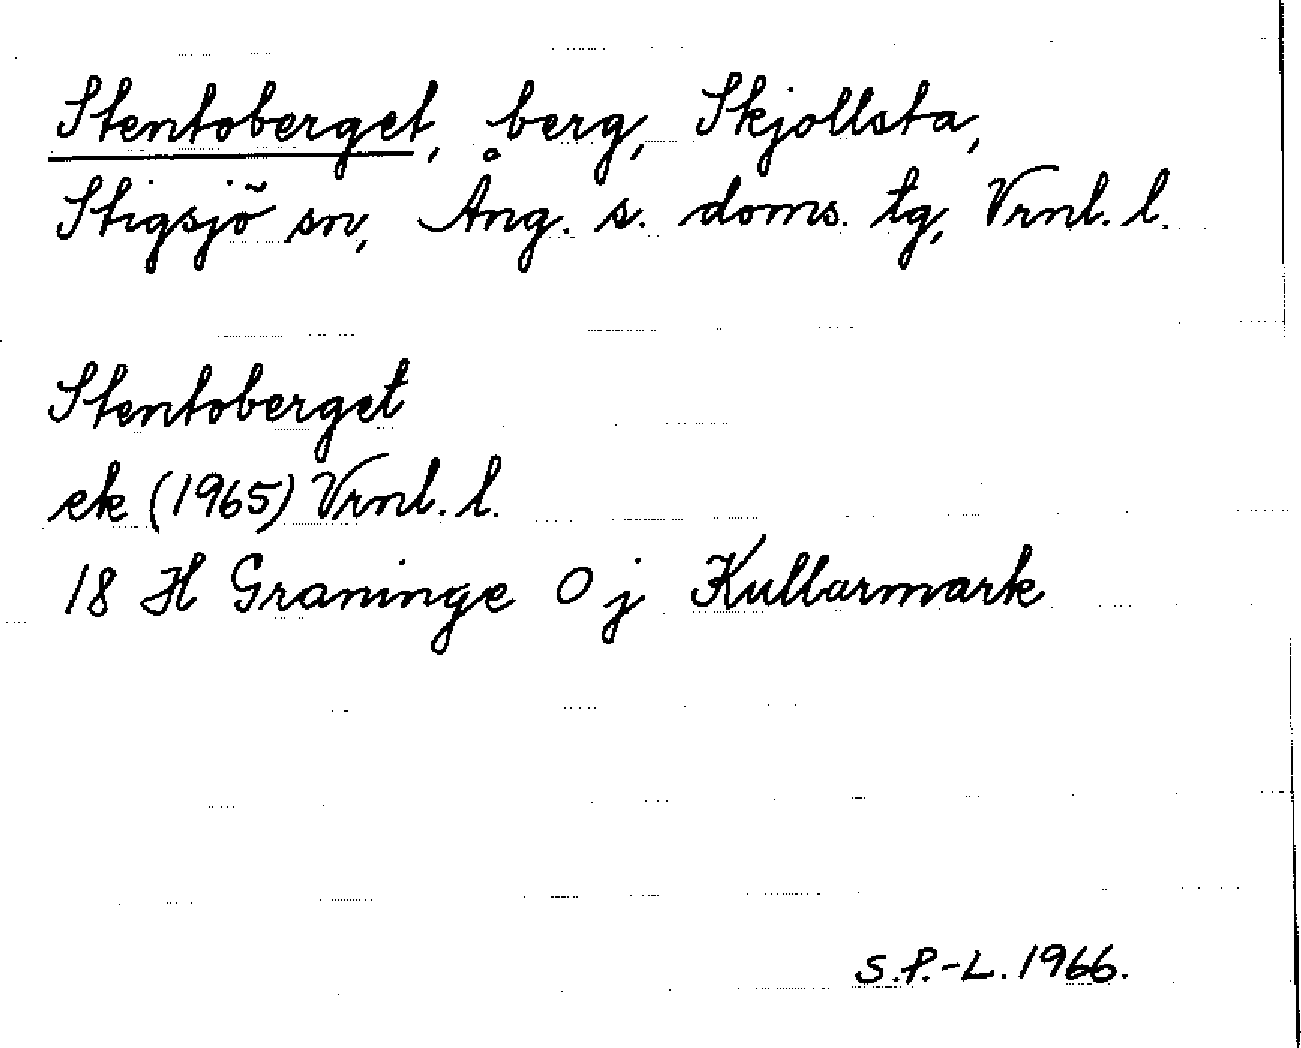 Stentoberget, berg, Skjollsta,
Stigsjö sn, Ång. s. doms. tg, Vrnl. l.
Stentoberget
ek (1965) Vrnl. l.
18 H Graninge O j Kullarmark
S.P.-L. 1966.